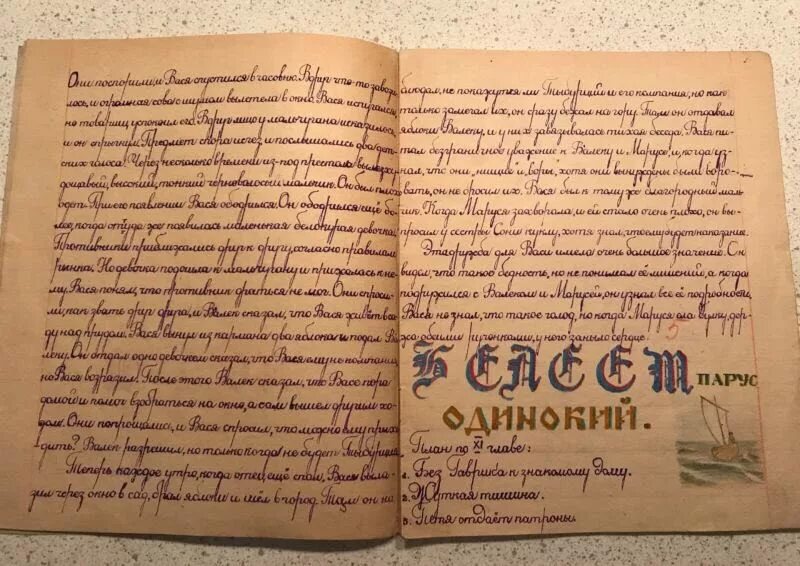 Они поспорили, и Вася спустился в часовню. Вдруг что-то завози-
лось, и огромная сова с шумом вылетела в окно. Вася испугался,
но товарищ успокоил его. Вдруг лицо у мальчугана исказилось,
и он спрыгнул. Предмет спора исчез, и послышались два дет-
ских голоса. Через несколько времени из-под престола вылез
высокий, тонкий черноволосый мальчик. Он был плохо
одет. При его появлении Вася ободрился. Он ободрился ещё бо-
лее, когда оттуда же появилась маленькая белокурая девочка.
Противники приближались друг к другу, согласно правилам
рынка. Но девочка подошла к мальчугану и прижалась к не-
му. Вася понял, что противник драться не мог. Они спроси-
ли, как звать друг друга, и Валек сказал, что Вася живёт в са-
ду над прудом. Вася вынул из кармана два яблока и подал Ва-
леку. Он отдал одно девочке и сказал, что Вася ему не компания,
но Вася возразил. После этого Валек сказал, что Васе пора
домой и помог взобраться на окно, а сам вышел другим хо-
дом. Они попрощались, и Вася спросил, что можно ему прихо-
дить? Валек разрешил, но только когда не будет Тыбурция.
Теперь каждое утро, когда отец ещё спал, Вася выла-
зил через окно в сад, брал яблоки и шёл в город. Там он на-
блюдал, не покажутся ли Тыбурций и его компания, но как
только замечал их, он сразу бежал на гору. Там он отдавал
яблоки Валеку, и у них завязывалась тихая беседа. Вася пи-
тал безграничное уважение к Валеку и Марусе, и, когда уз-
нал, что они „нищие" и „воры", хотя они вынуждены были воро-
вать, он не бросил их. Вася был к тому же благородный маль-
чик. Когда Маруся захворала, и ей стало очень плохо, он вы-
просил у сестры Сони куклу, хотя знал, что ему будет наказание.
Эта дружба для Васи имела очень большое значение. Он
видал, что такое бедность, но не понимал её лишений, а когда
подружился с Валеком и Марусей, он узнал все её подробности.
Вася не знал, что такое голод, но когда Маруся ела булку, дер-
жа обеими ручонками, у него заныло сердце.
5
БЕЛЕЕТ ПАРУС
ОДИНОКИЙ.
План по XI главе:
1. Без Гаврика к знакомому дому.
2. Жуткая тишина.
3. Петя отдаёт патроны.